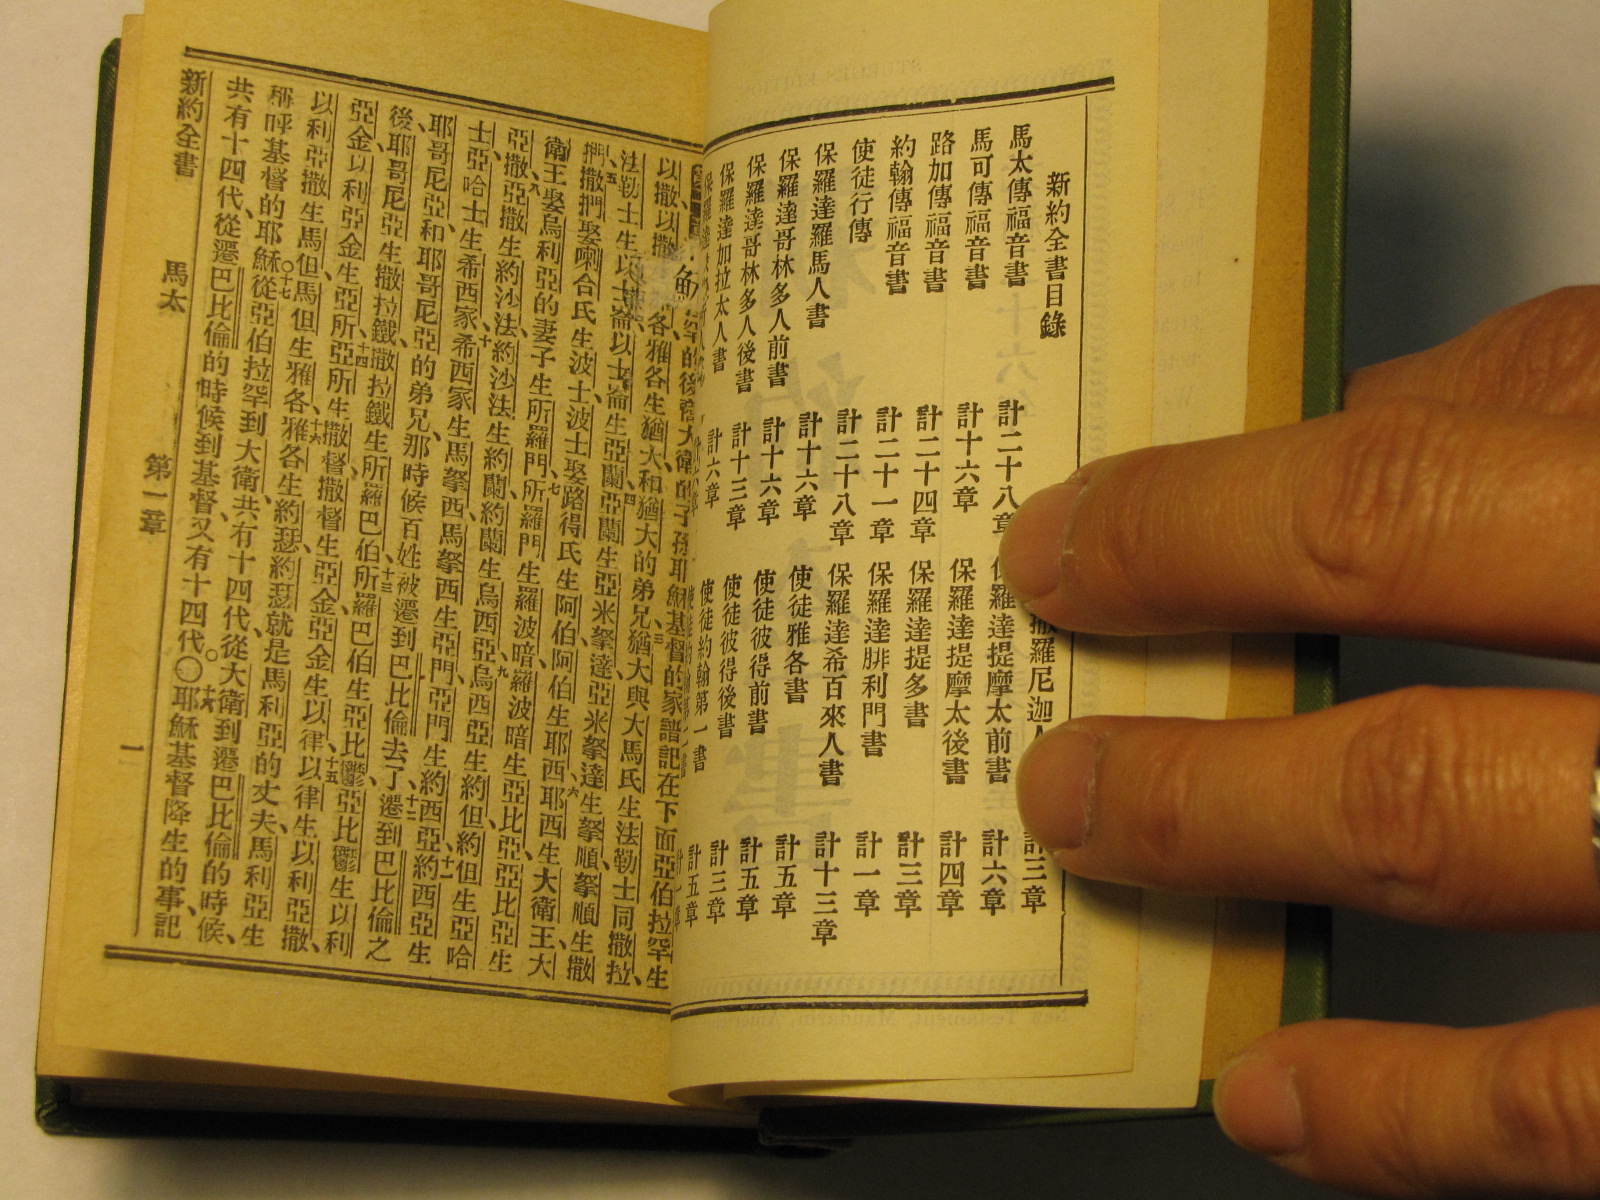 新約全書目錄 撒羅尼迦人 計三章
馬太傳福音書 計二十八章 保羅達提摩太前書 計六章
馬可傳福音書 計十六章 保羅達提摩太後書 計四章
路加傳福音書 計二十四章 保羅達提多書 計三章
約翰傳福音書 計二十一章 保羅達腓利門書 計一章
使徒行傳 計二十八章 保羅達希百來人書 計十三章
保羅達羅馬人書 計十六章 使徒雅各書 計五章
保羅達哥林多人前書 計十六章 使徒彼得前書 計五章
保羅達哥林多人後書 計十三章 使徒彼得後書 計三章
保羅達加拉太人書 計六章 使徒約翰第一書 計五章
的後裔大衛的子孫耶穌基督的家譜記在下面亞伯拉罕生
以撒、以撒各、雅各生猶大和猶大的弟兄、三猶大與大馬氏生法勒士同撒拉、
法勒士生以士崙、以士崙生亞蘭、四亞蘭生亞米拏達、亞米拏達生拏順、拏順生撒
捫、五撒捫娶喇合氏生波士、波士娶路得氏生阿伯、阿伯生耶西、六耶西生大衛王、大
衛王娶烏利亞的妻子生所羅門、七所羅門生羅波暗、羅波暗生亞比亞、亞比亞生
亞撒、八亞撒生約沙法、約沙法生約蘭、約蘭生烏西亞、九烏西亞生約但、約但生亞哈
士、亞哈士生希西家、十希西家生馬拏西、馬拏西生亞門、亞門生約西亞、十一約西亞生
耶哥尼亞和耶哥尼亞的弟兄、那時候百姓被遷到巴比倫去了、十二遷到巴比倫之
後、耶哥尼亞生撒拉鐵、撒拉鐵生所羅巴伯、十三所羅巴伯生亞比鬱、亞比鬱生以利
亞金、以利亞金生亞所、十四亞所生撒督、撒督生亞金、亞金生以律、十五以律生以利亞撒、
以利亞撒生馬但、馬但生雅各、十六雅各生約瑟、約瑟就是馬利亞的丈夫、馬利亞生
稱呼基督的耶穌。○十七從亞伯拉罕到大衛、共有十四代、從大衛到遷巴比倫的時候、
共有十四代、從遷巴比倫的時候到基督、又有十四代。○十八耶穌基督降生的事、記
新約全書 馬太 第一章 一